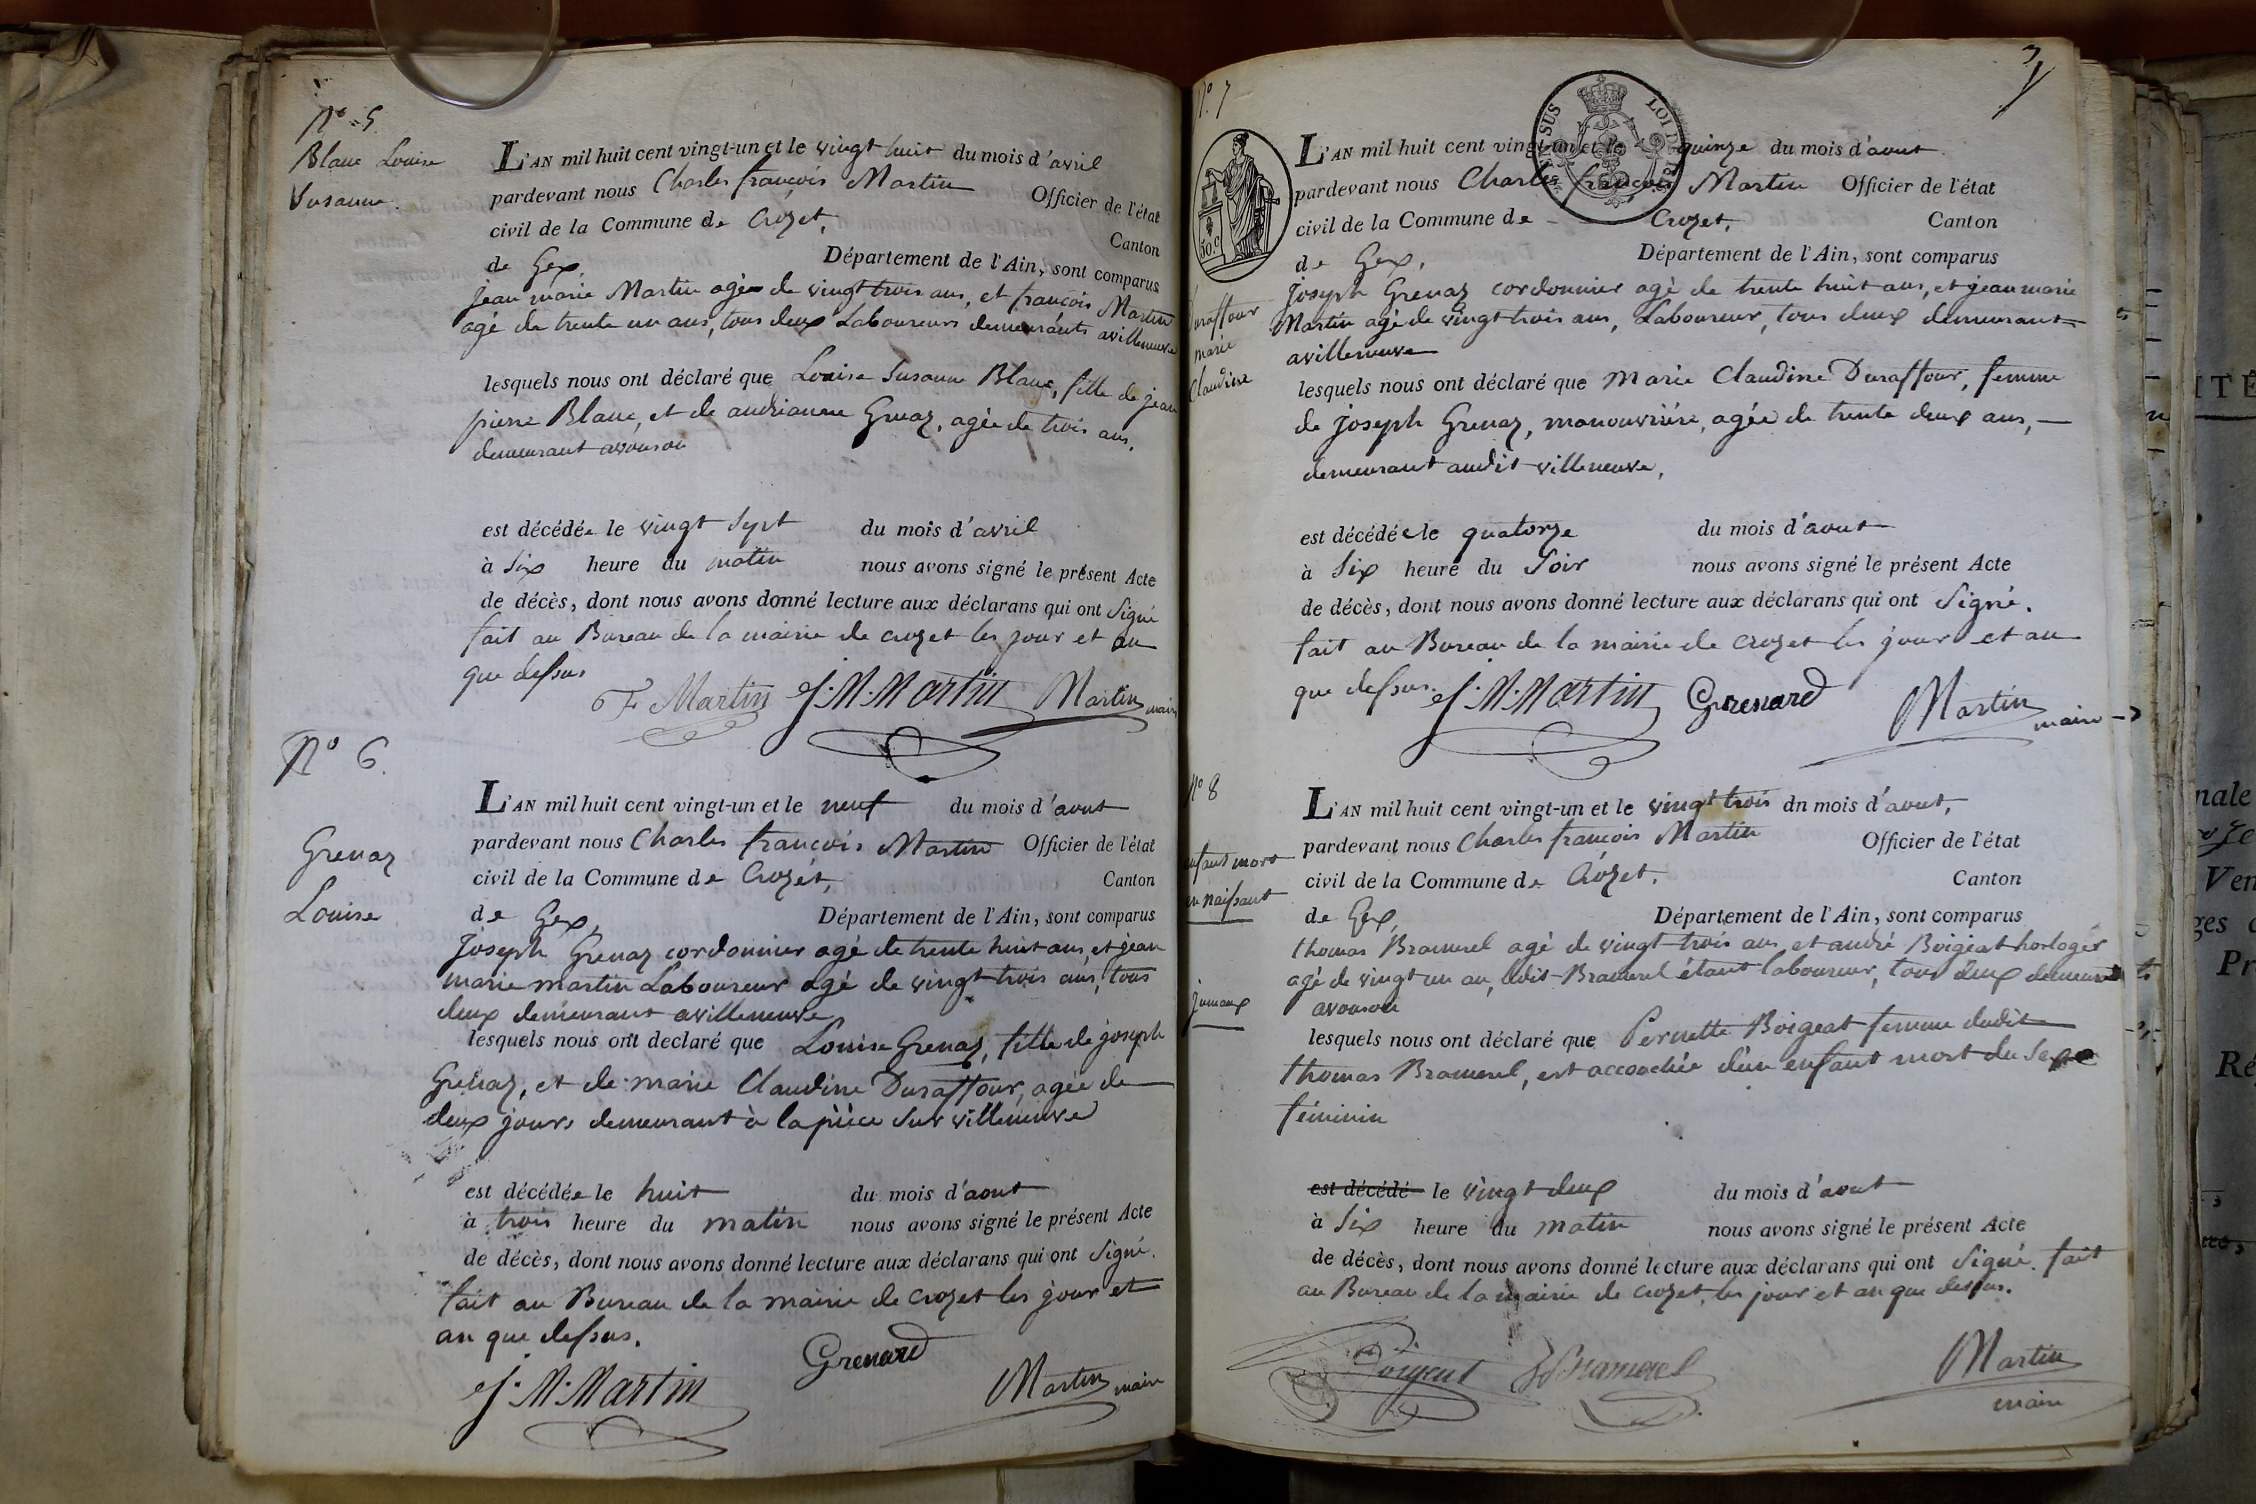 N° 5.
Blanc Louise
Susanne.
L'AN mil huit cent vingt-un et le vingt huit du mois d'avril
pardevant nous Charles françois Martin Officier de l'état
civil de la Commune de Crozet, Canton
de Gex, Département de l'Ain, sont comparus
jean marie Martin agé de vingt trois ans, et françois Martin
agé de trente un ans, tous deux Laboureurs demeurants avilleneuve
lesquels nous ont déclaré que Louise Susanne Blanc, fille de jean
pierre Blanc, et de andrianne Gruaz, agée de trois ans,
demeurant avouson
est décédée le vingt Sept du mois d'avril
à Six heure du matin nous avons signé le présent Acte
de décès, dont nous avons donné lecture aux déclarans qui ont Signé
fait au Bureau de la mairie de crozet les jour et an
que dessus
F Martin J. M. Martin Martin maire
N° 6.
Grenaz
Louise
L'AN mil huit cent vingt-un et le neuf du mois d'aout
pardevant nous Charles françois Martin Officier de l'état
civil de la Commune de Crozet, Canton
de Gex, Département de l'Ain, sont comparus
Joseph Grenaz cordonnier agé de trente huit ans, et jean
marie martin Laboureur agé de vingt trois ans, tous
deux demeurant avilleneuve
lesquels nous ont declaré que Louise Grenaz, fille de joseph
Grenaz, et de marie Claudine Duraffour, agée de
deux jours demeurant à la pièce sur villeneuve
est décédée le huit du mois d'aout
à trois heure du matin nous avons signé le présent Acte
de décès, dont nous avons donné lecture aux déclarans qui ont Signé.
fait au Bureau de la mairie de crozet les jour et
an que dessus.
J. M. Martin Grenard Martin maire
N° 7
Duraffour
marie
Claudine
50 c
L'AN mil huit cent vingt-un et le quinze du mois d'aout
pardevant nous Charles françois Martin Officier de l'état
civil de la Commune de Crozet, Canton
de Gex, Département de l'Ain, sont comparus
Joseph Grenaz cordonnier agé de trente huit ans, et jean marie
Martin agé de vingt trois ans, Laboureur, tous deux demeurant
avilleneuve
lesquels nous ont déclaré que Marie Claudine Duraffour, femme
de joseph Grenaz, manouvrière, agée de trente deux ans,
demeurant audit villeneuve,
est décédée le quatorze du mois d'aout
à Six heure du Soir nous avons signé le présent Acte
de décès, dont nous avons donné lecture aux déclarans qui ont Signé.
fait au Bureau de la mairie de crozet les jour et an
que dessus.
J. M. Martin Grenard Martin maire
N° 8
enfant mort
en naissant
jumaux
L'AN mil huit cent vingt-un et le vingt trois dn mois d'aout,
pardevant nous Charles françois Martin Officier de l'état
civil de la Commune de Crozet, Canton
de Gex, Département de l'Ain, sont comparus
thomas Bramerel agé de vingt trois ans et andré Boigeat horloger
agé de vingt un an, ledit Bramerel étant laboureur, tous deux demeurants
avouson
lesquels nous ont déclaré que Pernette Boigeat femme dudit
thomas Bramerel, est accouchée d'un enfant mort du Sexe
féminin
est décédé le vingt deux du mois d'aout
à Six heure du matin nous avons signé le présent Acte
de décès, dont nous avons donné lecture aux déclarans qui ont Signé. fait
au Bureau de la mairie de crozet, les jour et an que dessus.
Boigeat Bramerel Martin
maire